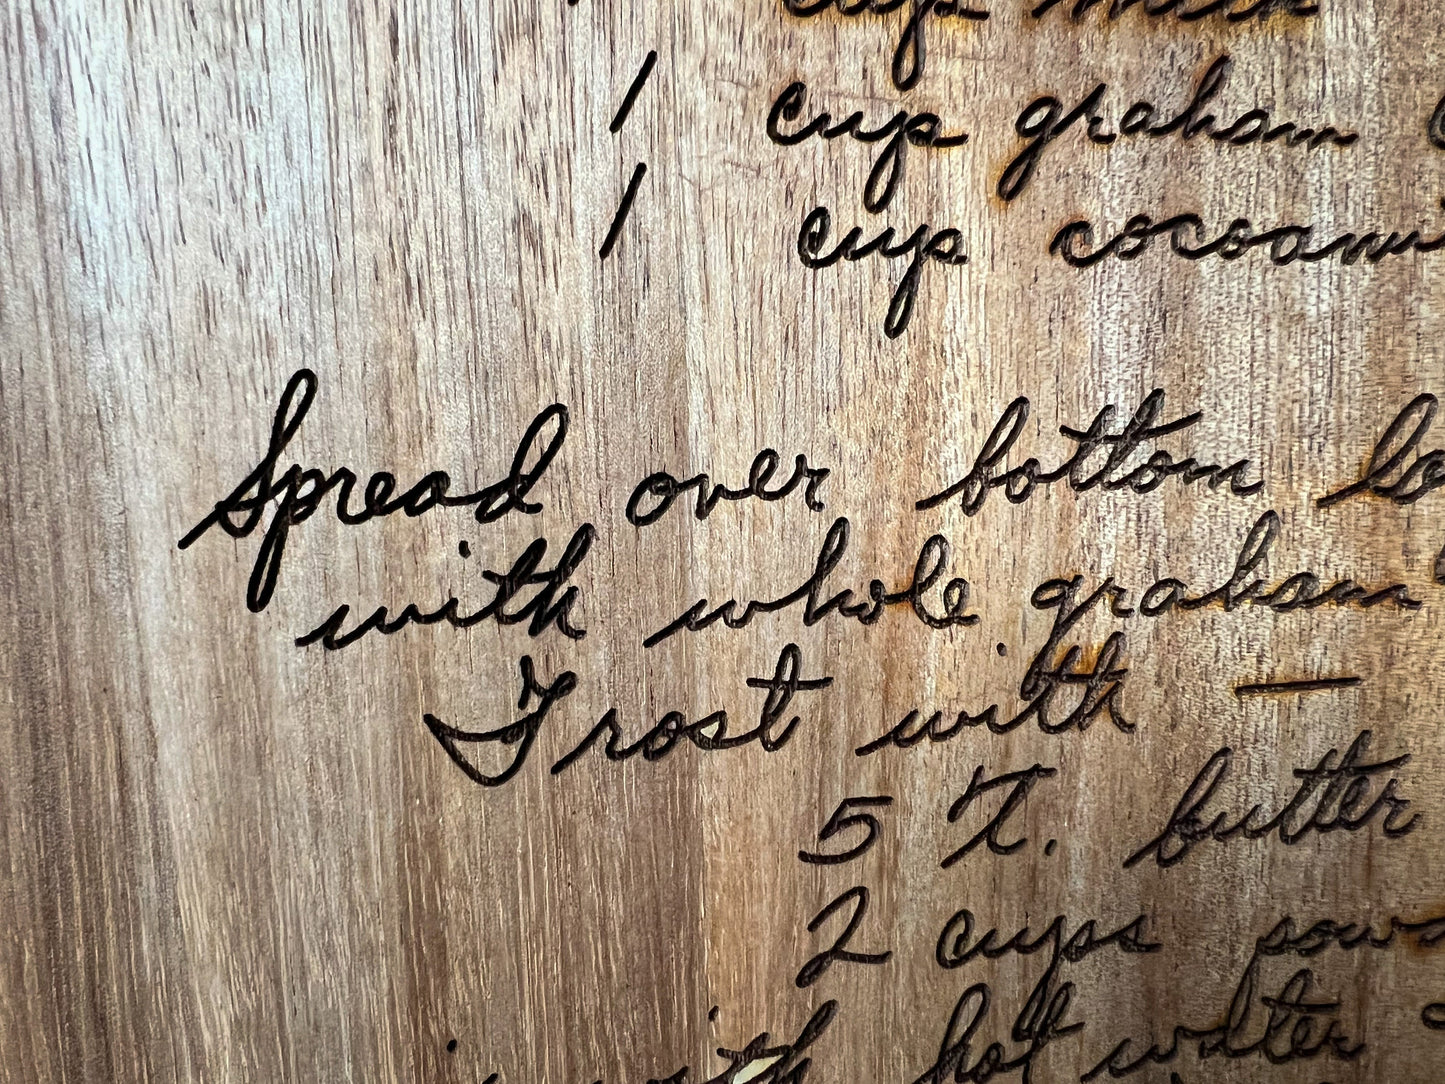 cup milk
1 cup graham
1 cup cocoanut
Spread over bottom
with whole graham
Frost with —
5 T. butter
2 cups
with hot water